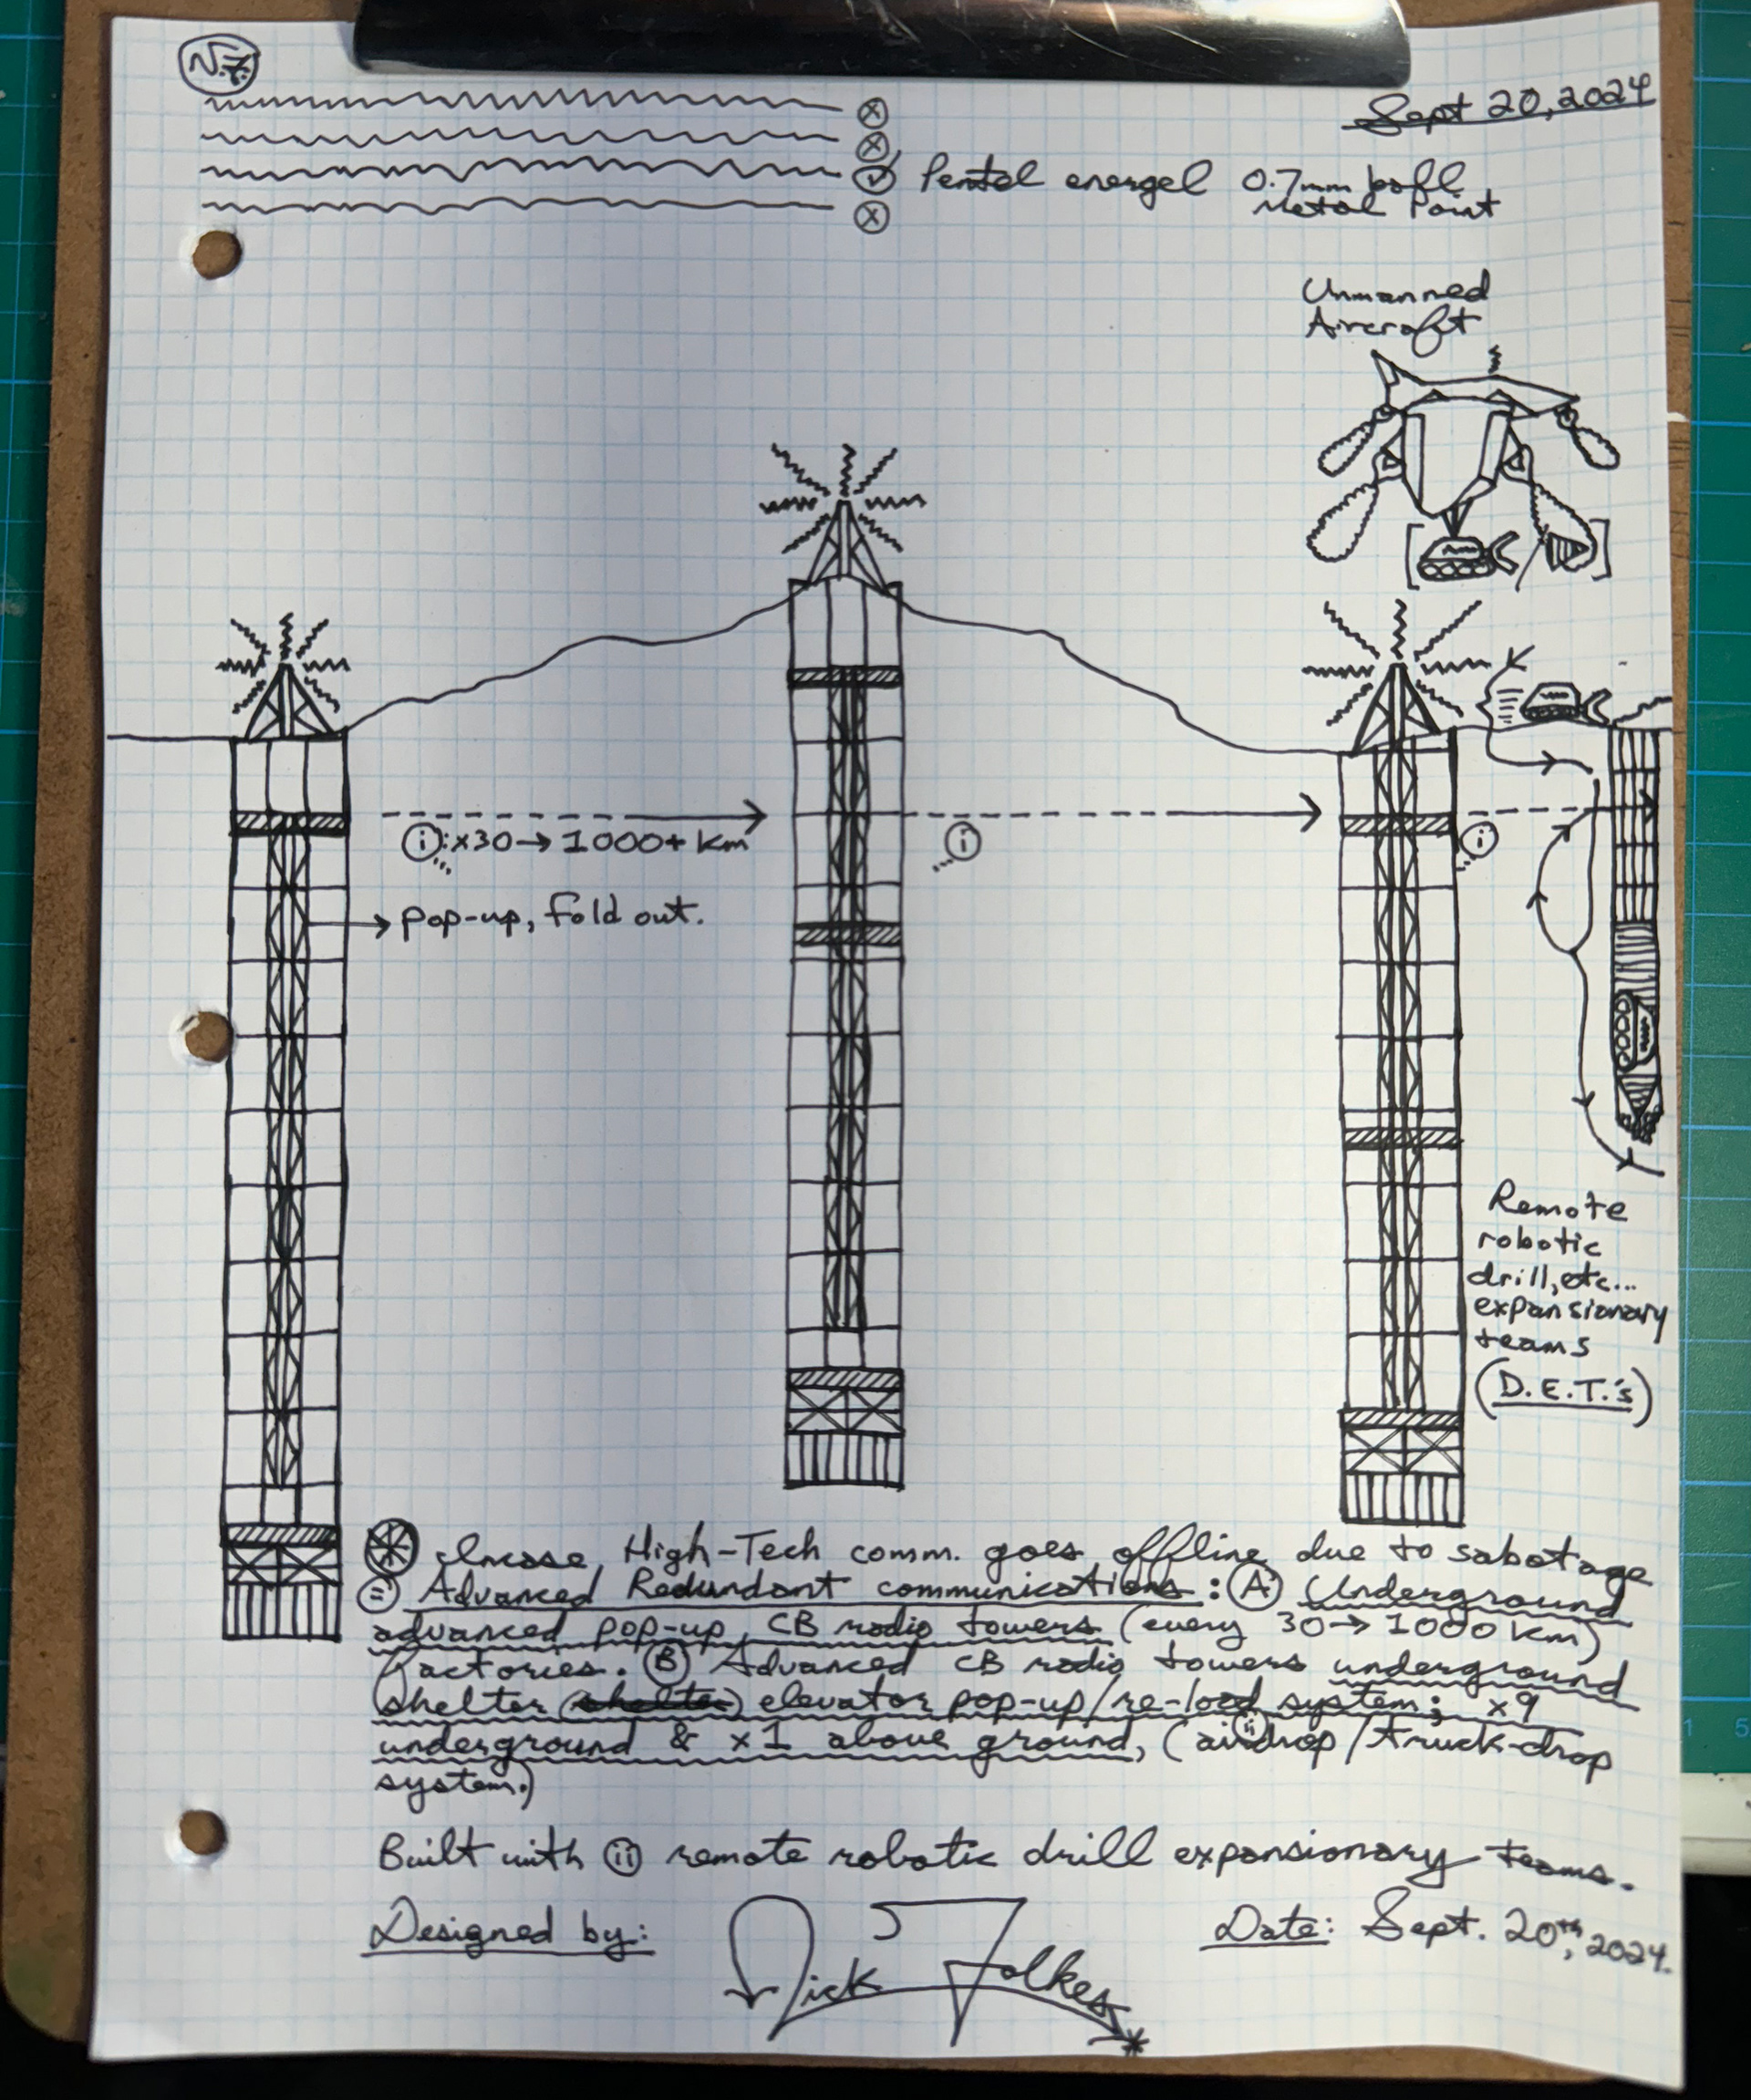 N.F.
Sept 20, 2024
Pentel energel 0.7mm ball
Metal Point
Unmanned
Aircraft
i : x30 → 1000+ km
i
i
→ pop-up, fold out.
Remote
robotic
drill, etc...
expansionary
teams
(D.E.T.'s)
Incase High-Tech comm. goes offline due to sabotage
= Advanced Redundant communications: A Underground
advanced pop-up CB radio towers (every 30 → 1000 km)
factories. B Advanced CB radio towers underground
shelter (shelter) elevator pop-up/re-load system; x9
underground & x1 above ground, (airdrop/truck-drop
system.)
Built with ii remote robotic drill expansionary teams.
Designed by: Nick Folkes Date: Sept. 20th, 2024.